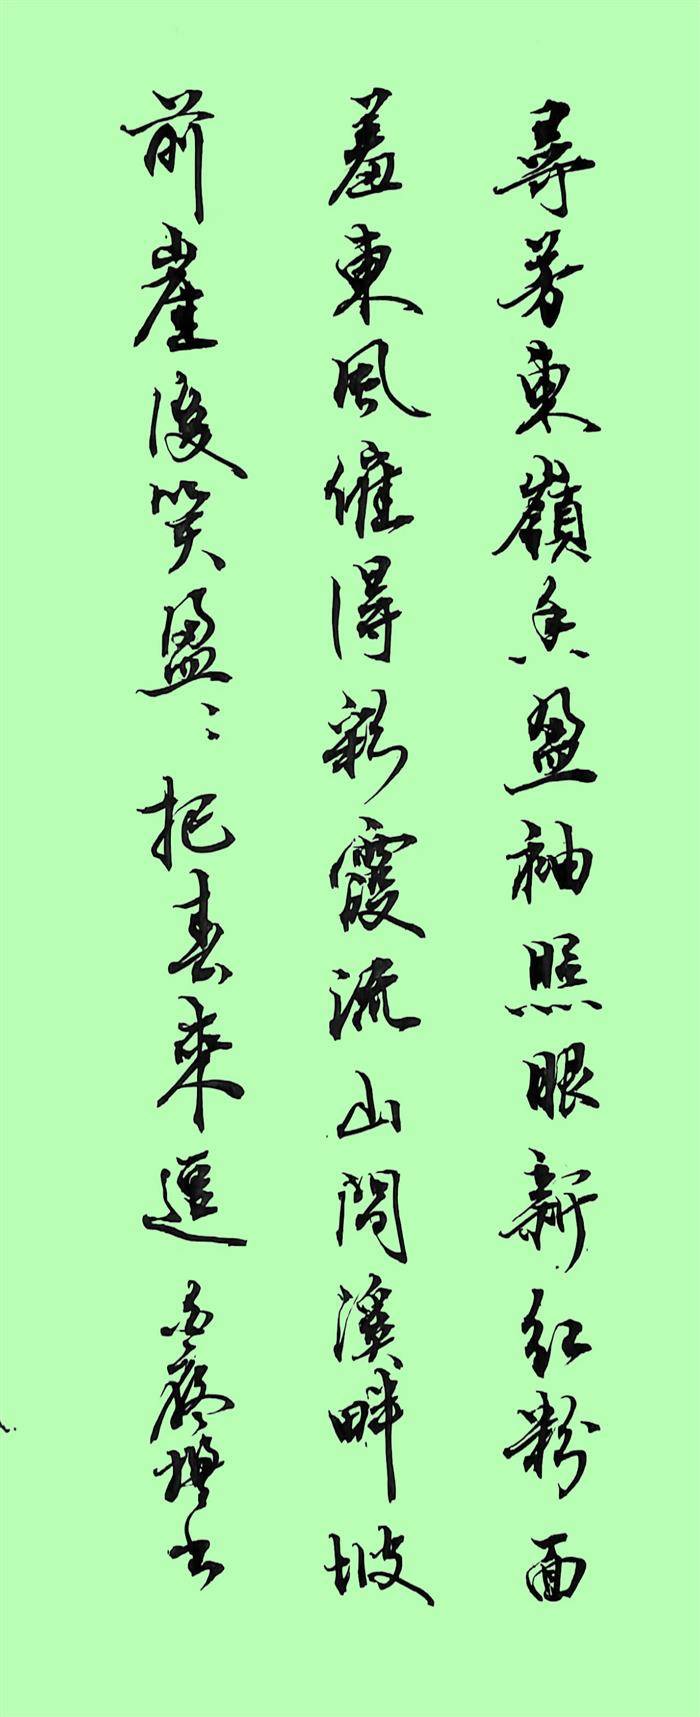 尋芳東嶺香盈袖照眼新紅粉面
羞東風催得彩霞流山間溪畔坡
前崖後笑盈〻把春來逗